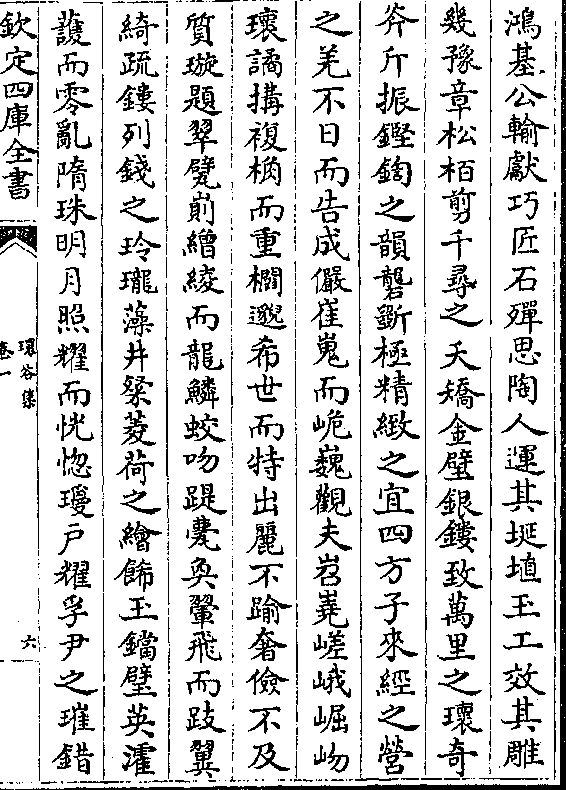 鴻基公輸獻巧匠石殫思陶人運其埏埴玉工效其雕
幾豫章松栢剪千尋之夭矯金璧銀鏤致萬里之瓌奇
斧斤振鏗鍧之韻礱斲極精緻之宜四方子來經之營
之羌不日而告成儼崔嵬而峗巍觀夫岧嶤嵯峨崛岉
瓌譎搆複桷而重櫩邈希世而特出麗不踰奢儉不及
質璇題翠甓剬繒綾而龍鱗蛟吻踶甍奐翬飛而跂翼
綺疏鏤列錢之玲瓏藻井粲菱荷之繪飾玉鐺璧英濩
頀而零亂隋珠明月照耀而恍惚璦戶耀孚尹之璀錯
欽定四庫全書
環谷集
卷一
六